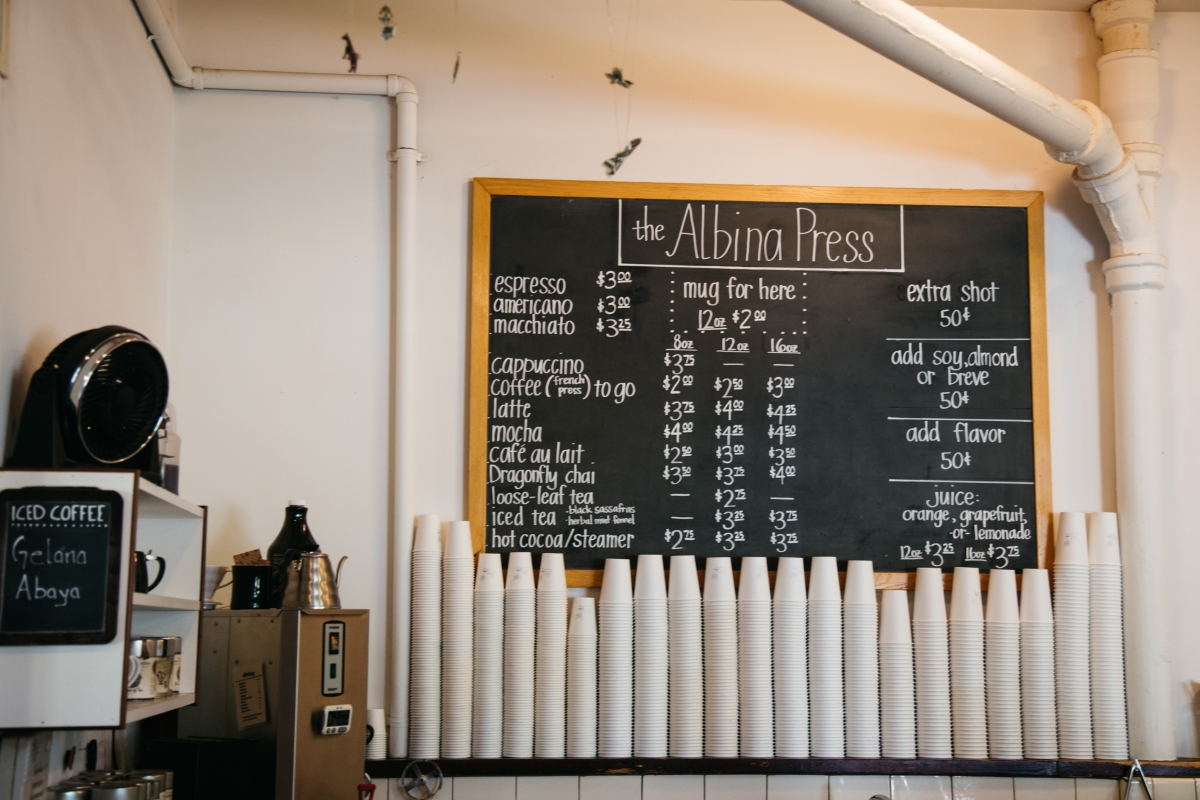 the Albina Press
espresso $3.00
americano $3.00
macchiato $3.25
mug for here
12oz $2.00
8oz 12oz 16oz
cappuccino $3.75 — —
coffee (french press) to go $2.00 $2.50 $3.00
latte $3.75 $4.00 $4.25
mocha $4.00 $4.25 $4.50
café au lait $2.50 $3.00 $3.50
Dragonfly chai $3.50 $3.75 $4.00
loose-leaf tea — $2.75 —
iced tea -black sassafras -herbal mint fennel — $3.25 $3.75
hot cocoa/steamer $2.75 $3.25 $3.75
extra shot
50¢
add soy, almond
or breve
50¢
add flavor
50¢
juice:
orange, grapefruit,
-or- lemonade
12oz $3.25 16oz $3.75
ICED COFFEE
Gelana
Abaya